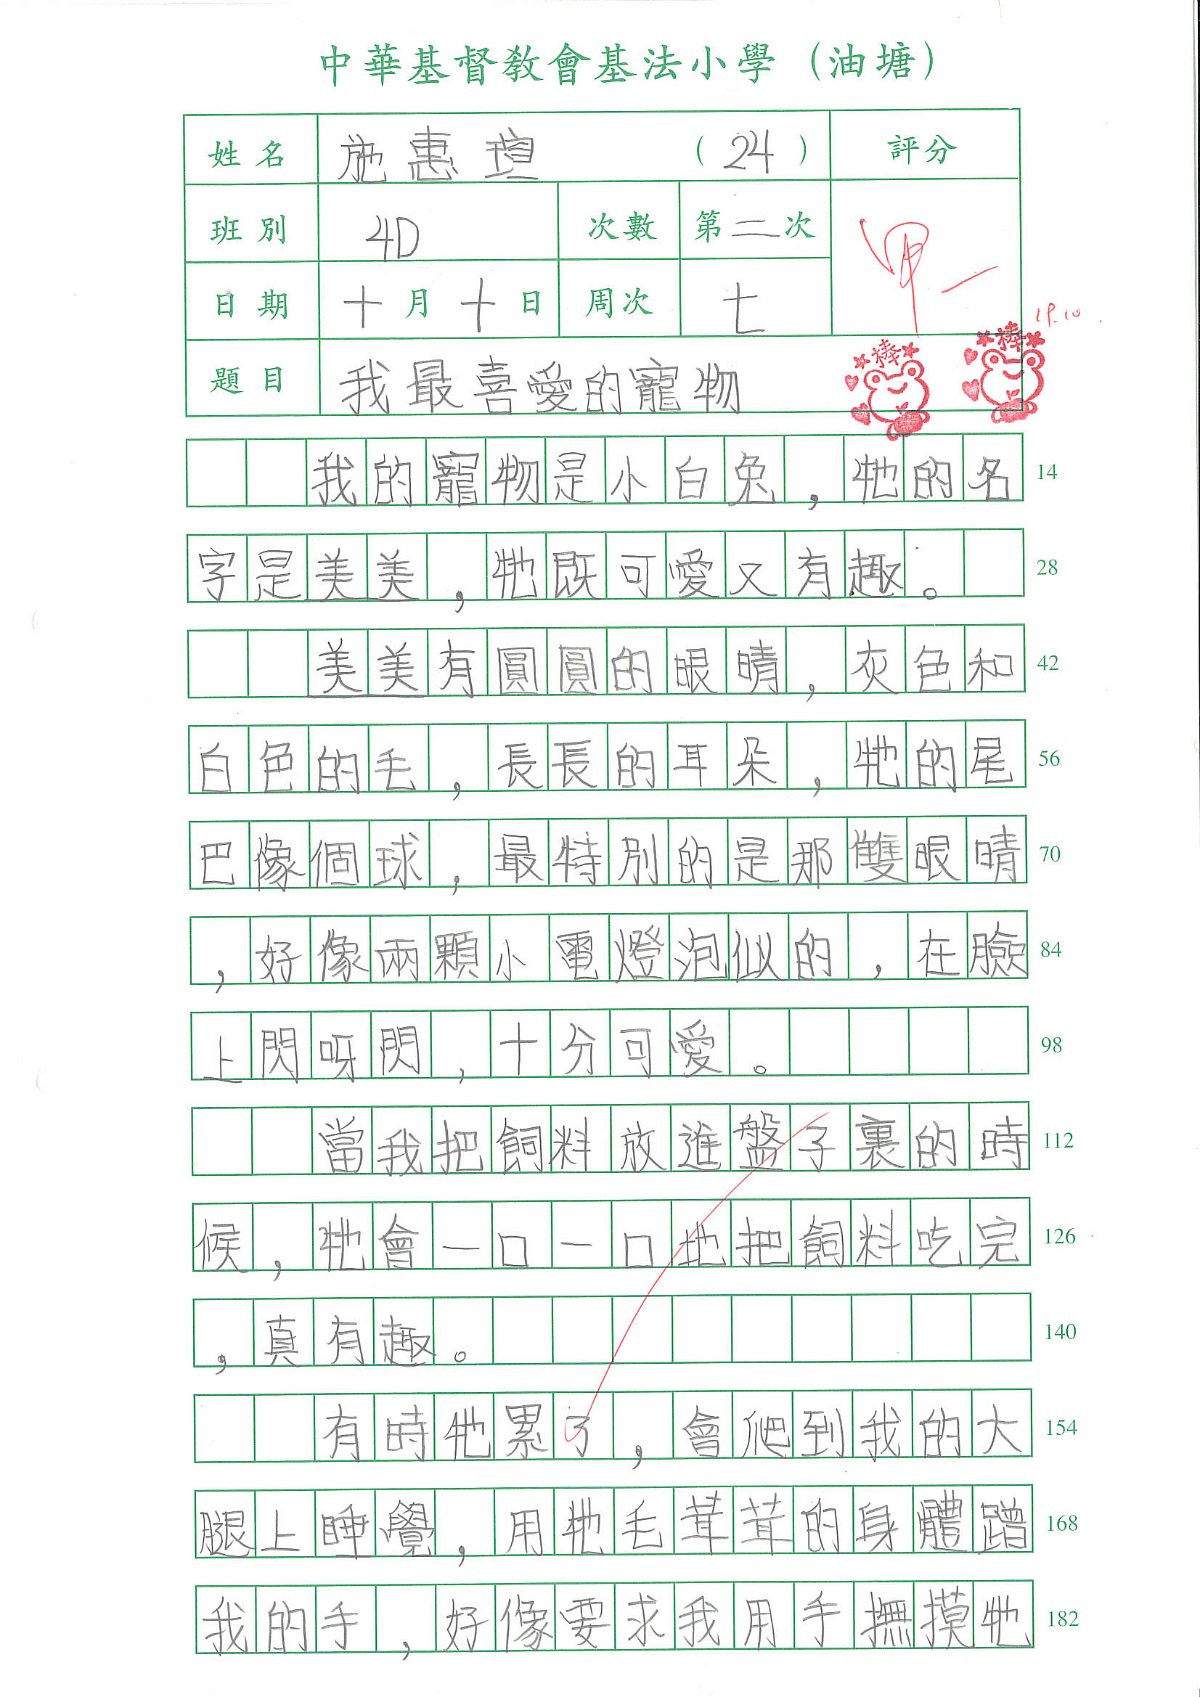 中華基督教會基法小學（油塘）
姓名 施惠瑄 （24） 評分
班別 4D 次數 第二次 甲-
日期 十月十日 周次 七
19.10
題目 我最喜愛的寵物
棒 棒
我的寵物是小白兔，牠的名 14
字是美美，牠既可愛又有趣。 28
美美有圓圓的眼睛，灰色和 42
白色的毛，長長的耳朵，牠的尾 56
巴像個球，最特別的是那雙眼睛 70
，好像兩顆小電燈泡似的，在臉 84
上閃呀閃，十分可愛。 98
當我把飼料放進盤子裏的時 112
候，牠會一口一口地把飼料吃完 126
，真有趣。 140
有時牠累了，會爬到我的大 154
腿上睡覺，用牠毛茸茸的身體蹭 168
我的手，好像要求我用手撫摸牠 182